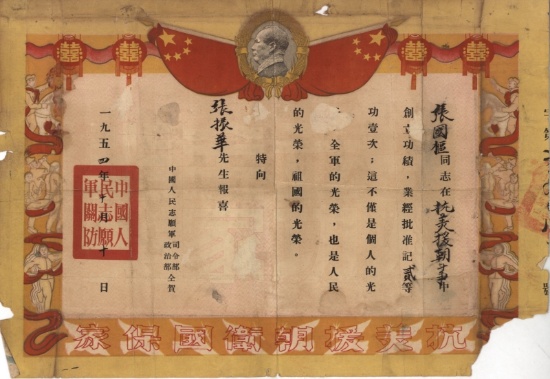 張國同志在抗美援朝
創立功績，業經批准記貳等
功壹次；這不僅是個人的光
全軍的光榮，也是人民
的光榮，祖國的光榮。
特向
張振華先生報喜
中國人民志願軍司令部
政治部仝賀
一九五四年十月十日
中國人
民志願
軍關防
抗美援朝衛國保家